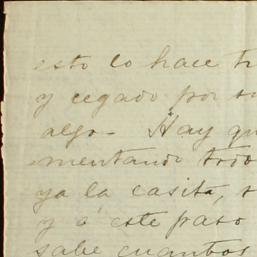 esto lo hace
y cegado por
algo - Hay
mentando todo
ya la casita,
y á este paso
sabe cuantos